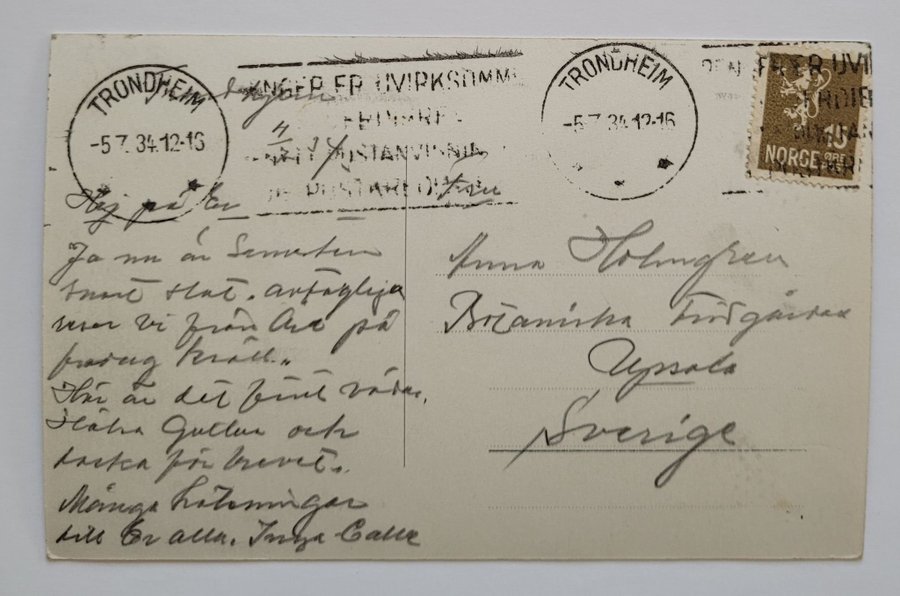 TRONDHEIM
-5.7.34.12-16
PENGER ER UVIRKSOMME
POSTANVISNING
TRONDHEIM
-5.7.34.12-16
PENGER ER UVI
NORGE ØRE
15
4/7 34
Hej på Er
Ja nu är Semestern
snart slut. antagligen
reser vi från Åre på
fredag kväll.
Här är det fint väder.
Hälsa Gullan och
tacka för brevet.
Många hälsningar
till Er alla. Inga Calle
Fru
Anna Holmgren
Botaniska Trädgården
Upsala
Sverige